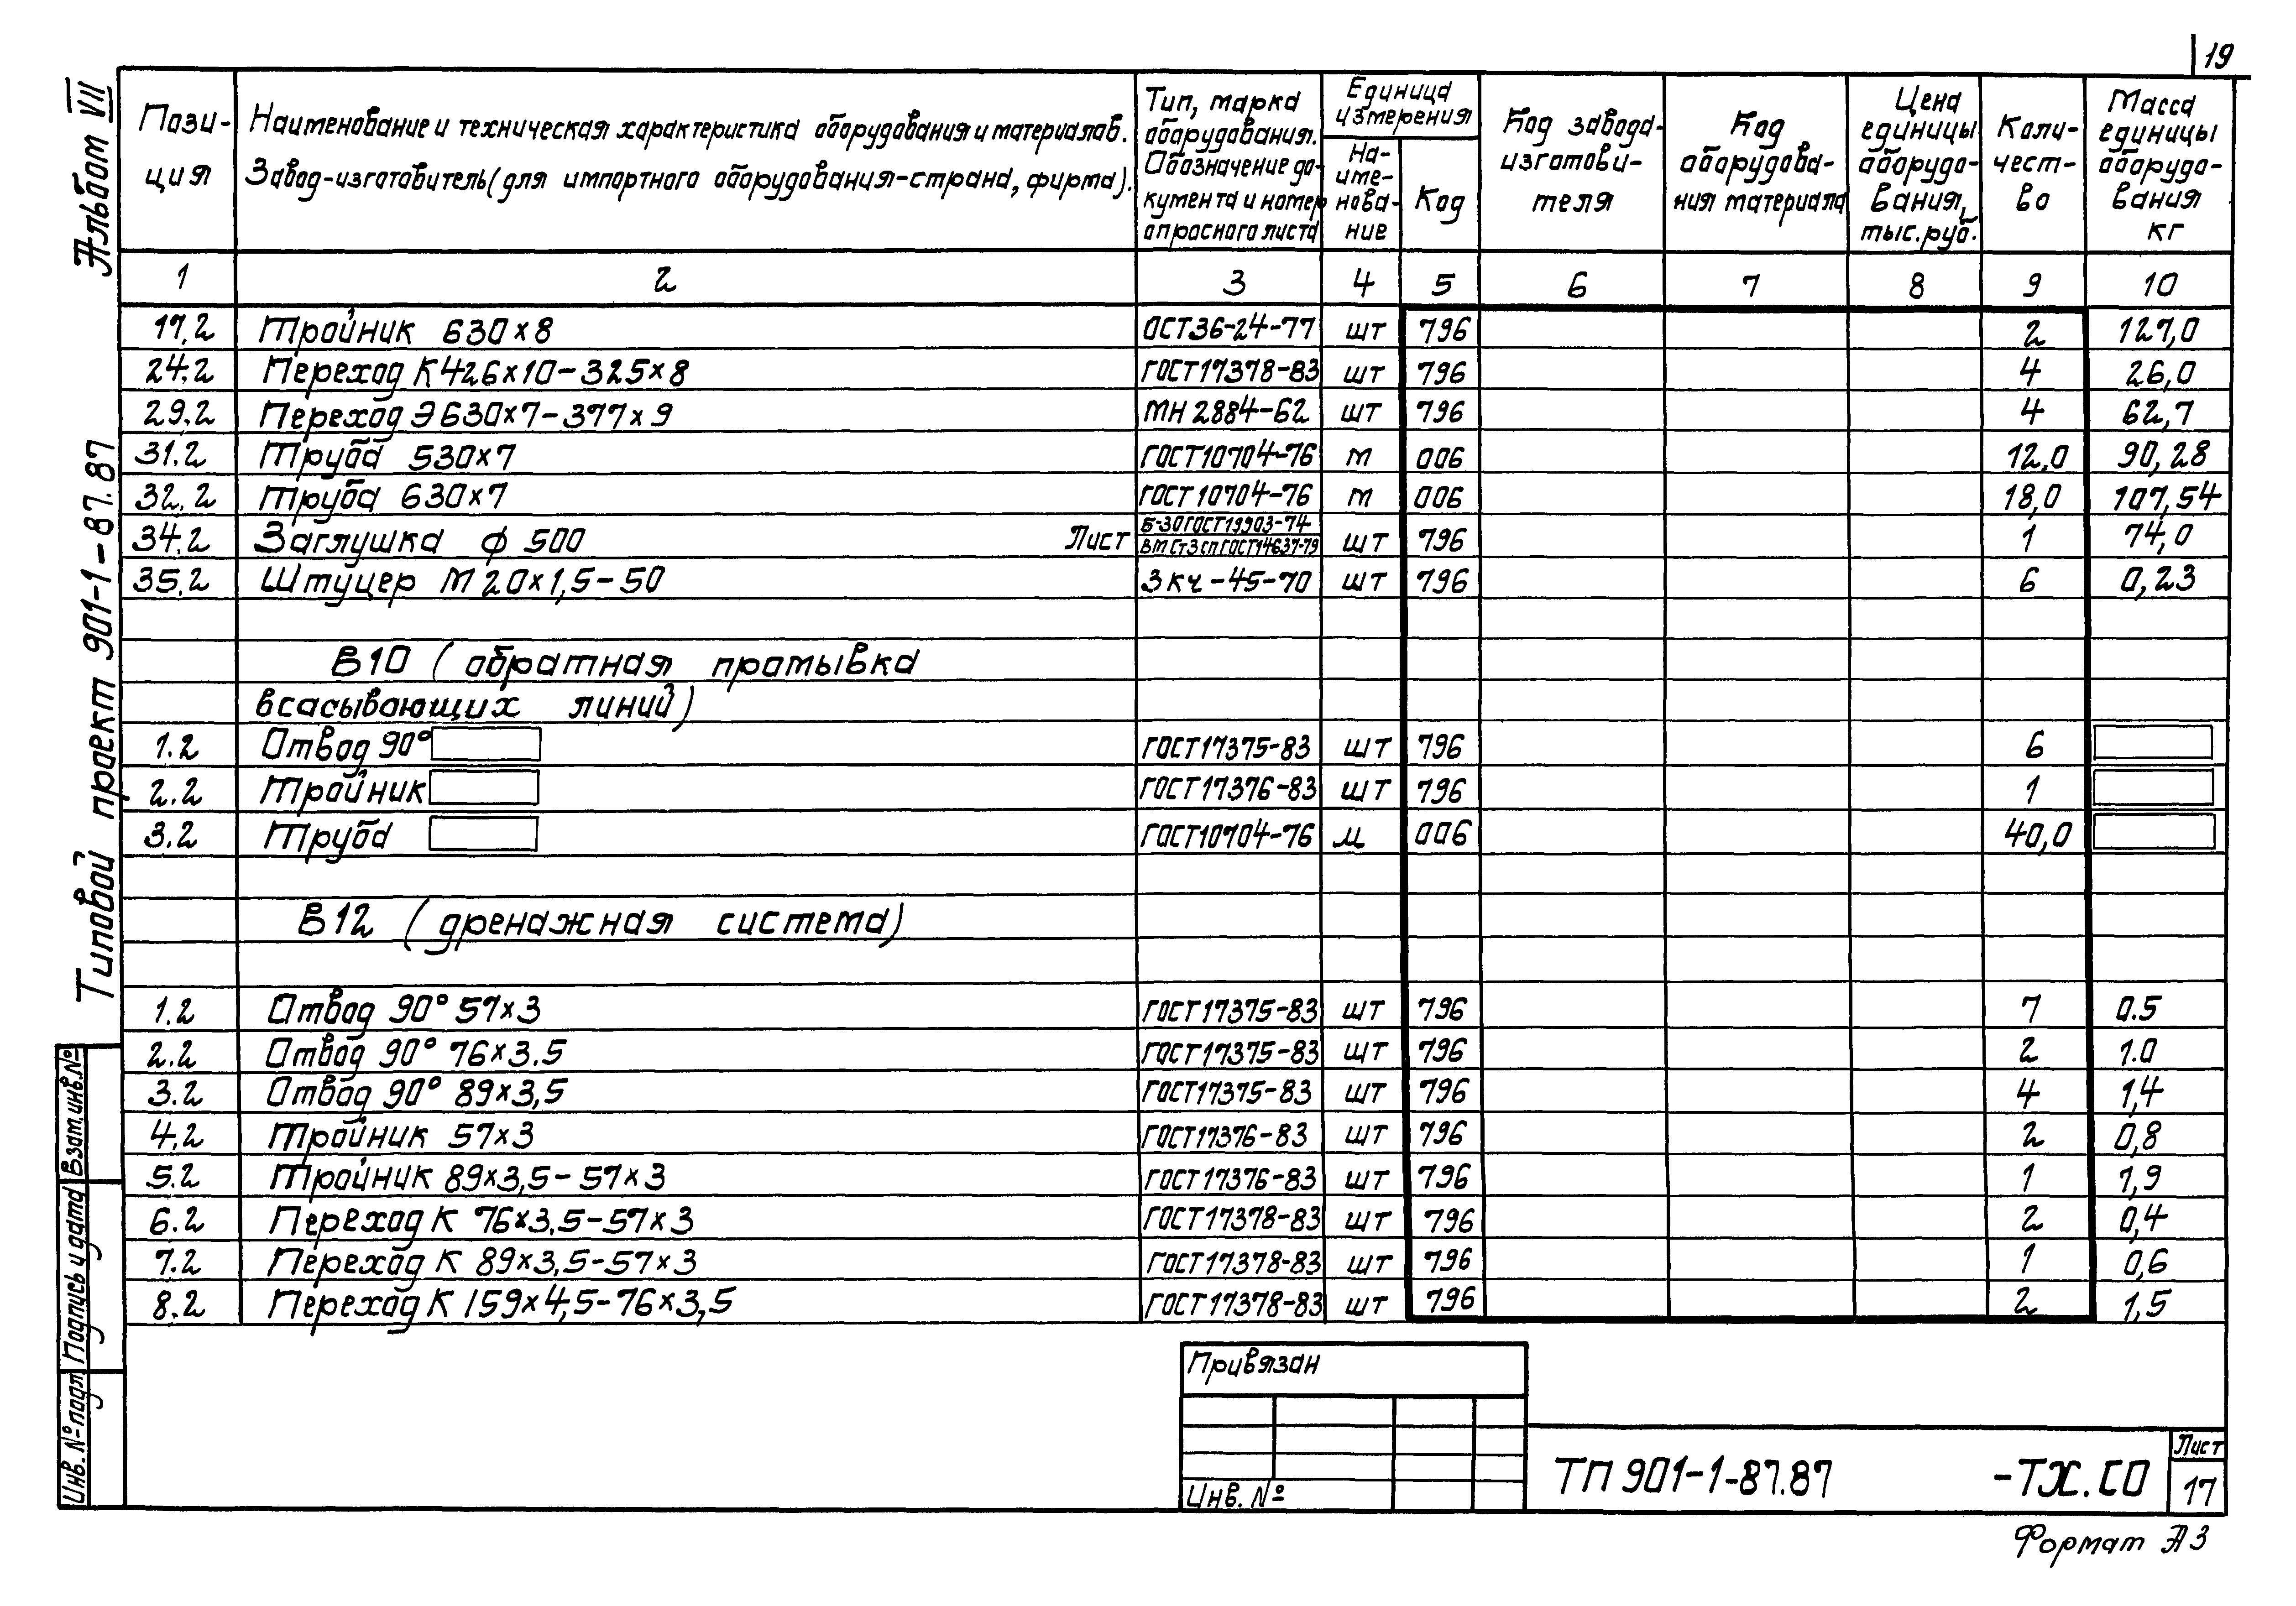 19
Альбом VII
Типовой проект 901-1-87.87
Пози-
ция
Наименование и техническая характеристика оборудования и материалов.
Завод-изготовитель (для импортного оборудования-страна, фирма).
Тип, марка
оборудования.
Обозначение до-
кумента и номер
опросного листа
Единица
измерения
На-
име-
нова-
ние
Код
Код завода-
изготови-
теля
Код
оборудова-
ния материала
Цена
единицы
оборудо-
вания,
тыс.руб.
Коли-
чест-
во
Масса
единицы
оборудо-
вания
кг
1 2 3 4 5 6 7 8 9 10
17.2 Тройник 630×8 ОСТ36-24-77 шт 796 2 127,0
24.2 Переход К426×10-325×8 ГОСТ17378-83 шт 796 4 26,0
29.2 Переход Э630×7-377×9 МН 2884-62 шт 796 4 62,7
31.2 Труба 530×7 ГОСТ10704-76 м 006 12,0 90,28
32.2 Труба 630×7 ГОСТ10704-76 м 006 18,0 107,54
34.2 Заглушка ф 500 Лист Б-30ГОСТ19903-74 шт 796 1 74,0
ВМСт3сп ГОСТ14637-79
35.2 Штуцер М20×1,5-50 3кч-45-70 шт 796 6 0,23
В10 (обратная промывка
всасывающих линий)
1.2 Отвод 90° ГОСТ17375-83 шт 796 6
2.2 Тройник ГОСТ17376-83 шт 796 1
3.2 Труба ГОСТ10704-76 м 006 40,0
В12 (дренажная система)
1.2 Отвод 90° 57×3 ГОСТ17375-83 шт 796 7 0.5
2.2 Отвод 90° 76×3.5 ГОСТ17375-83 шт 796 2 1.0
3.2 Отвод 90° 89×3,5 ГОСТ17375-83 шт 796 4 1,4
4.2 Тройник 57×3 ГОСТ17376-83 шт 796 2 0,8
5.2 Тройник 89×3,5-57×3 ГОСТ17376-83 шт 796 1 1,9
6.2 Переход К 76×3,5-57×3 ГОСТ17378-83 шт 796 2 0,4
7.2 Переход К 89×3,5-57×3 ГОСТ17378-83 шт 796 1 0,6
8.2 Переход К 159×4,5-76×3,5 ГОСТ17378-83 шт 796 2 1,5
Взам.инв.№
Подпись и дата
Инв. № подл
Привязан
Инв. №
ТП 901-1-87.87 -ТХ.СО
Лист
17
Формат А3